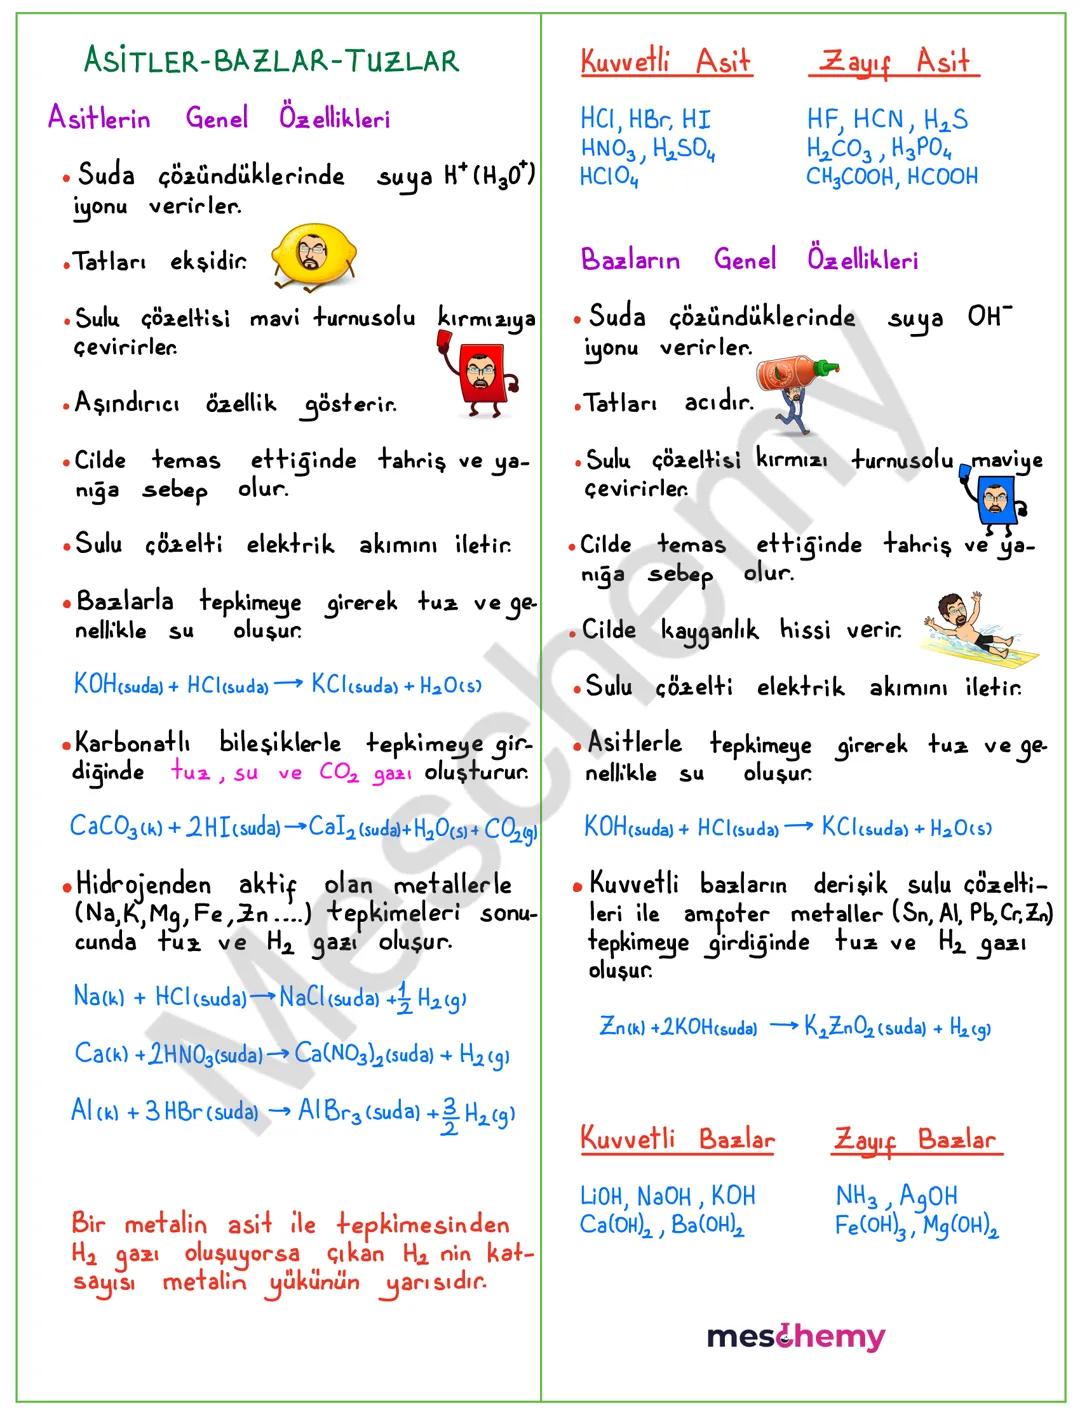 ASİTLER-BAZLAR-TUZLAR
Asitlerin Genel Özellikleri
• Suda çözündüklerinde suya H⁺(H₃O⁺)
iyonu verirler.
• Tatları ekşidir.
• Sulu çözeltisi mavi turnusolu kırmızıya
çevirirler.
• Aşındırıcı özellik gösterir.
• Cilde temas ettiğinde tahriş ve ya-
nığa sebep olur.
• Sulu çözelti elektrik akımını iletir.
• Bazlarla tepkimeye girerek tuz ve ge-
nellikle su oluşur.
KOH(suda) + HCl(suda) → KCl(suda) + H₂O(s)
• Karbonatlı bileşiklerle tepkimeye gir-
diğinde tuz, su ve CO₂ gazı oluşturur.
CaCO₃(k) + 2HI(suda) → CaI₂(suda) + H₂O(s) + CO₂(g)
• Hidrojenden aktif olan metallerle
(Na,K,Mg,Fe,Zn....) tepkimeleri sonu-
cunda tuz ve H₂ gazı oluşur.
Na(k) + HCl(suda) → NaCl(suda) + 1/2 H₂(g)
Ca(k) + 2HNO₃(suda) → Ca(NO₃)₂(suda) + H₂(g)
Al(k) + 3HBr(suda) → AlBr₃(suda) + 3/2 H₂(g)
Bir metalin asit ile tepkimesinden
H₂ gazı oluşuyorsa çıkan H₂ nin kat-
sayısı metalin yükünün yarısıdır.
Kuvvetli Asit Zayıf Asit
HCl, HBr, HI HF, HCN, H₂S
HNO₃, H₂SO₄ H₂CO₃, H₃PO₄
HClO₄ CH₃COOH, HCOOH
Bazların Genel Özellikleri
• Suda çözündüklerinde suya OH⁻
iyonu verirler.
• Tatları acıdır.
• Sulu çözeltisi kırmızı turnusolu maviye
çevirirler.
• Cilde temas ettiğinde tahriş ve ya-
nığa sebep olur.
• Cilde kayganlık hissi verir.
• Sulu çözelti elektrik akımını iletir.
• Asitlerle tepkimeye girerek tuz ve ge-
nellikle su oluşur.
KOH(suda) + HCl(suda) → KCl(suda) + H₂O(s)
• Kuvvetli bazların derişik sulu çözelti-
leri ile amfoter metaller (Sn, Al, Pb, Cr, Zn)
tepkimeye girdiğinde tuz ve H₂ gazı
oluşur.
Zn(k) + 2KOH(suda) → K₂ZnO₂(suda) + H₂(g)
Kuvvetli Bazlar Zayıf Bazlar
LiOH, NaOH, KOH NH₃, AgOH
Ca(OH)₂, Ba(OH)₂ Fe(OH)₃, Mg(OH)₂
meschemy
Meschemy